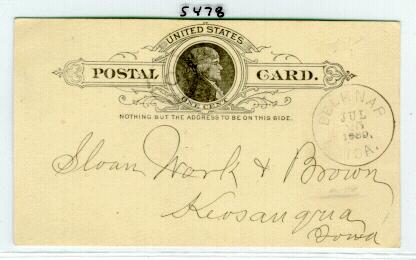 5478
UNITED STATES
POSTAL CARD.
ONE CENT
NOTHING BUT THE ADDRESS TO BE ON THIS SIDE.
BELKNAP
JUL
1889.
IA.
Sloan Work & Brown
Keosauqua
Iowa